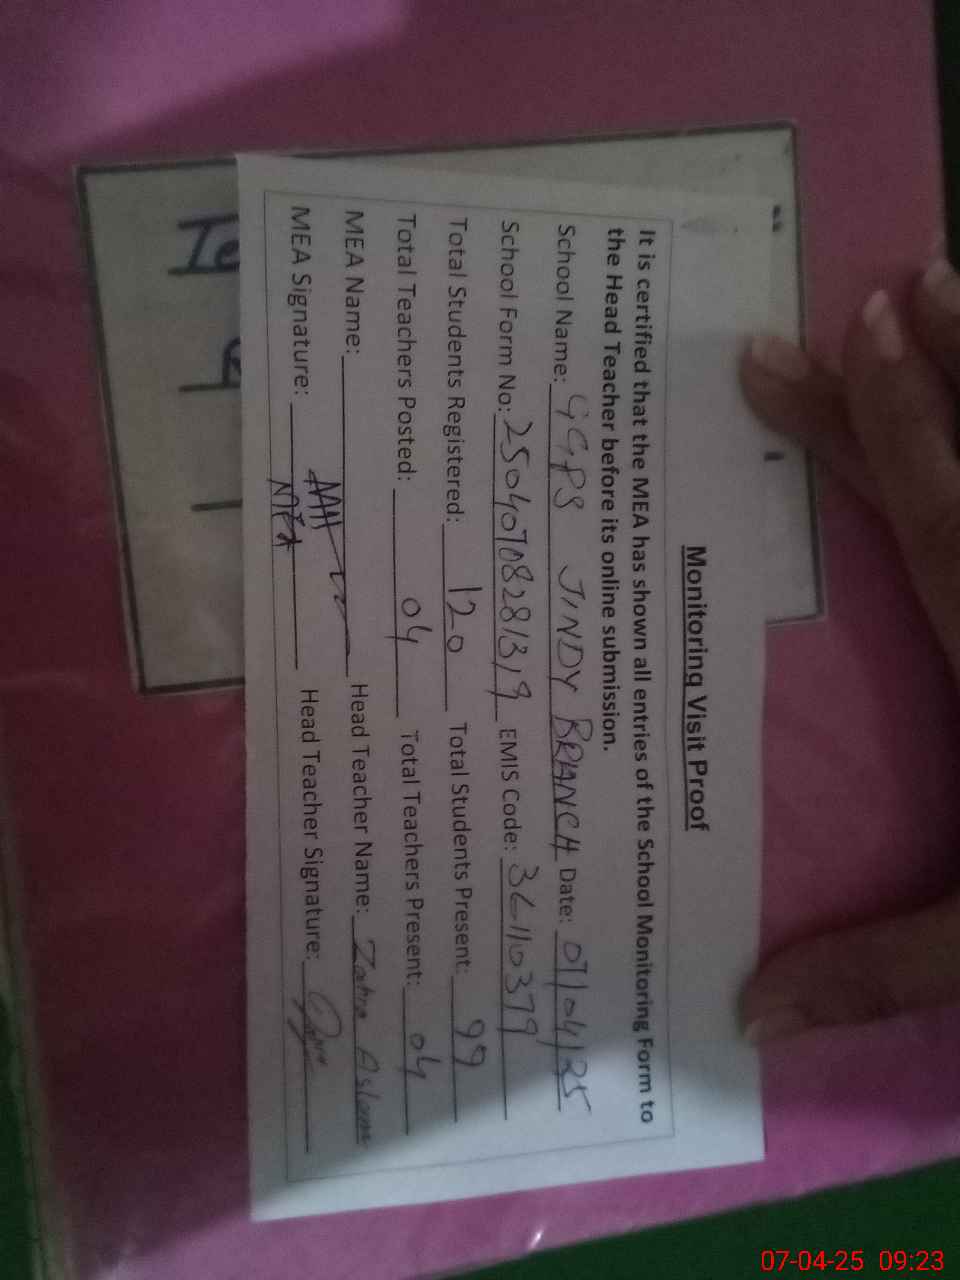 Monitoring Visit Proof
It is certified that the MEA has shown all entries of the School Monitoring Form to
the Head Teacher before its online submission.
School Name: GGPS JINDY BRANCH Date: 07/04/25
School Form No: 25040708281319 EMIS Code: 36110379
Total Students Registered: 120 Total Students Present: 99
Total Teachers Posted: 04 Total Teachers Present: 04
MEA Name: Head Teacher Name: Aslam
MEA Signature: Head Teacher Signature:
07-04-25 09:23